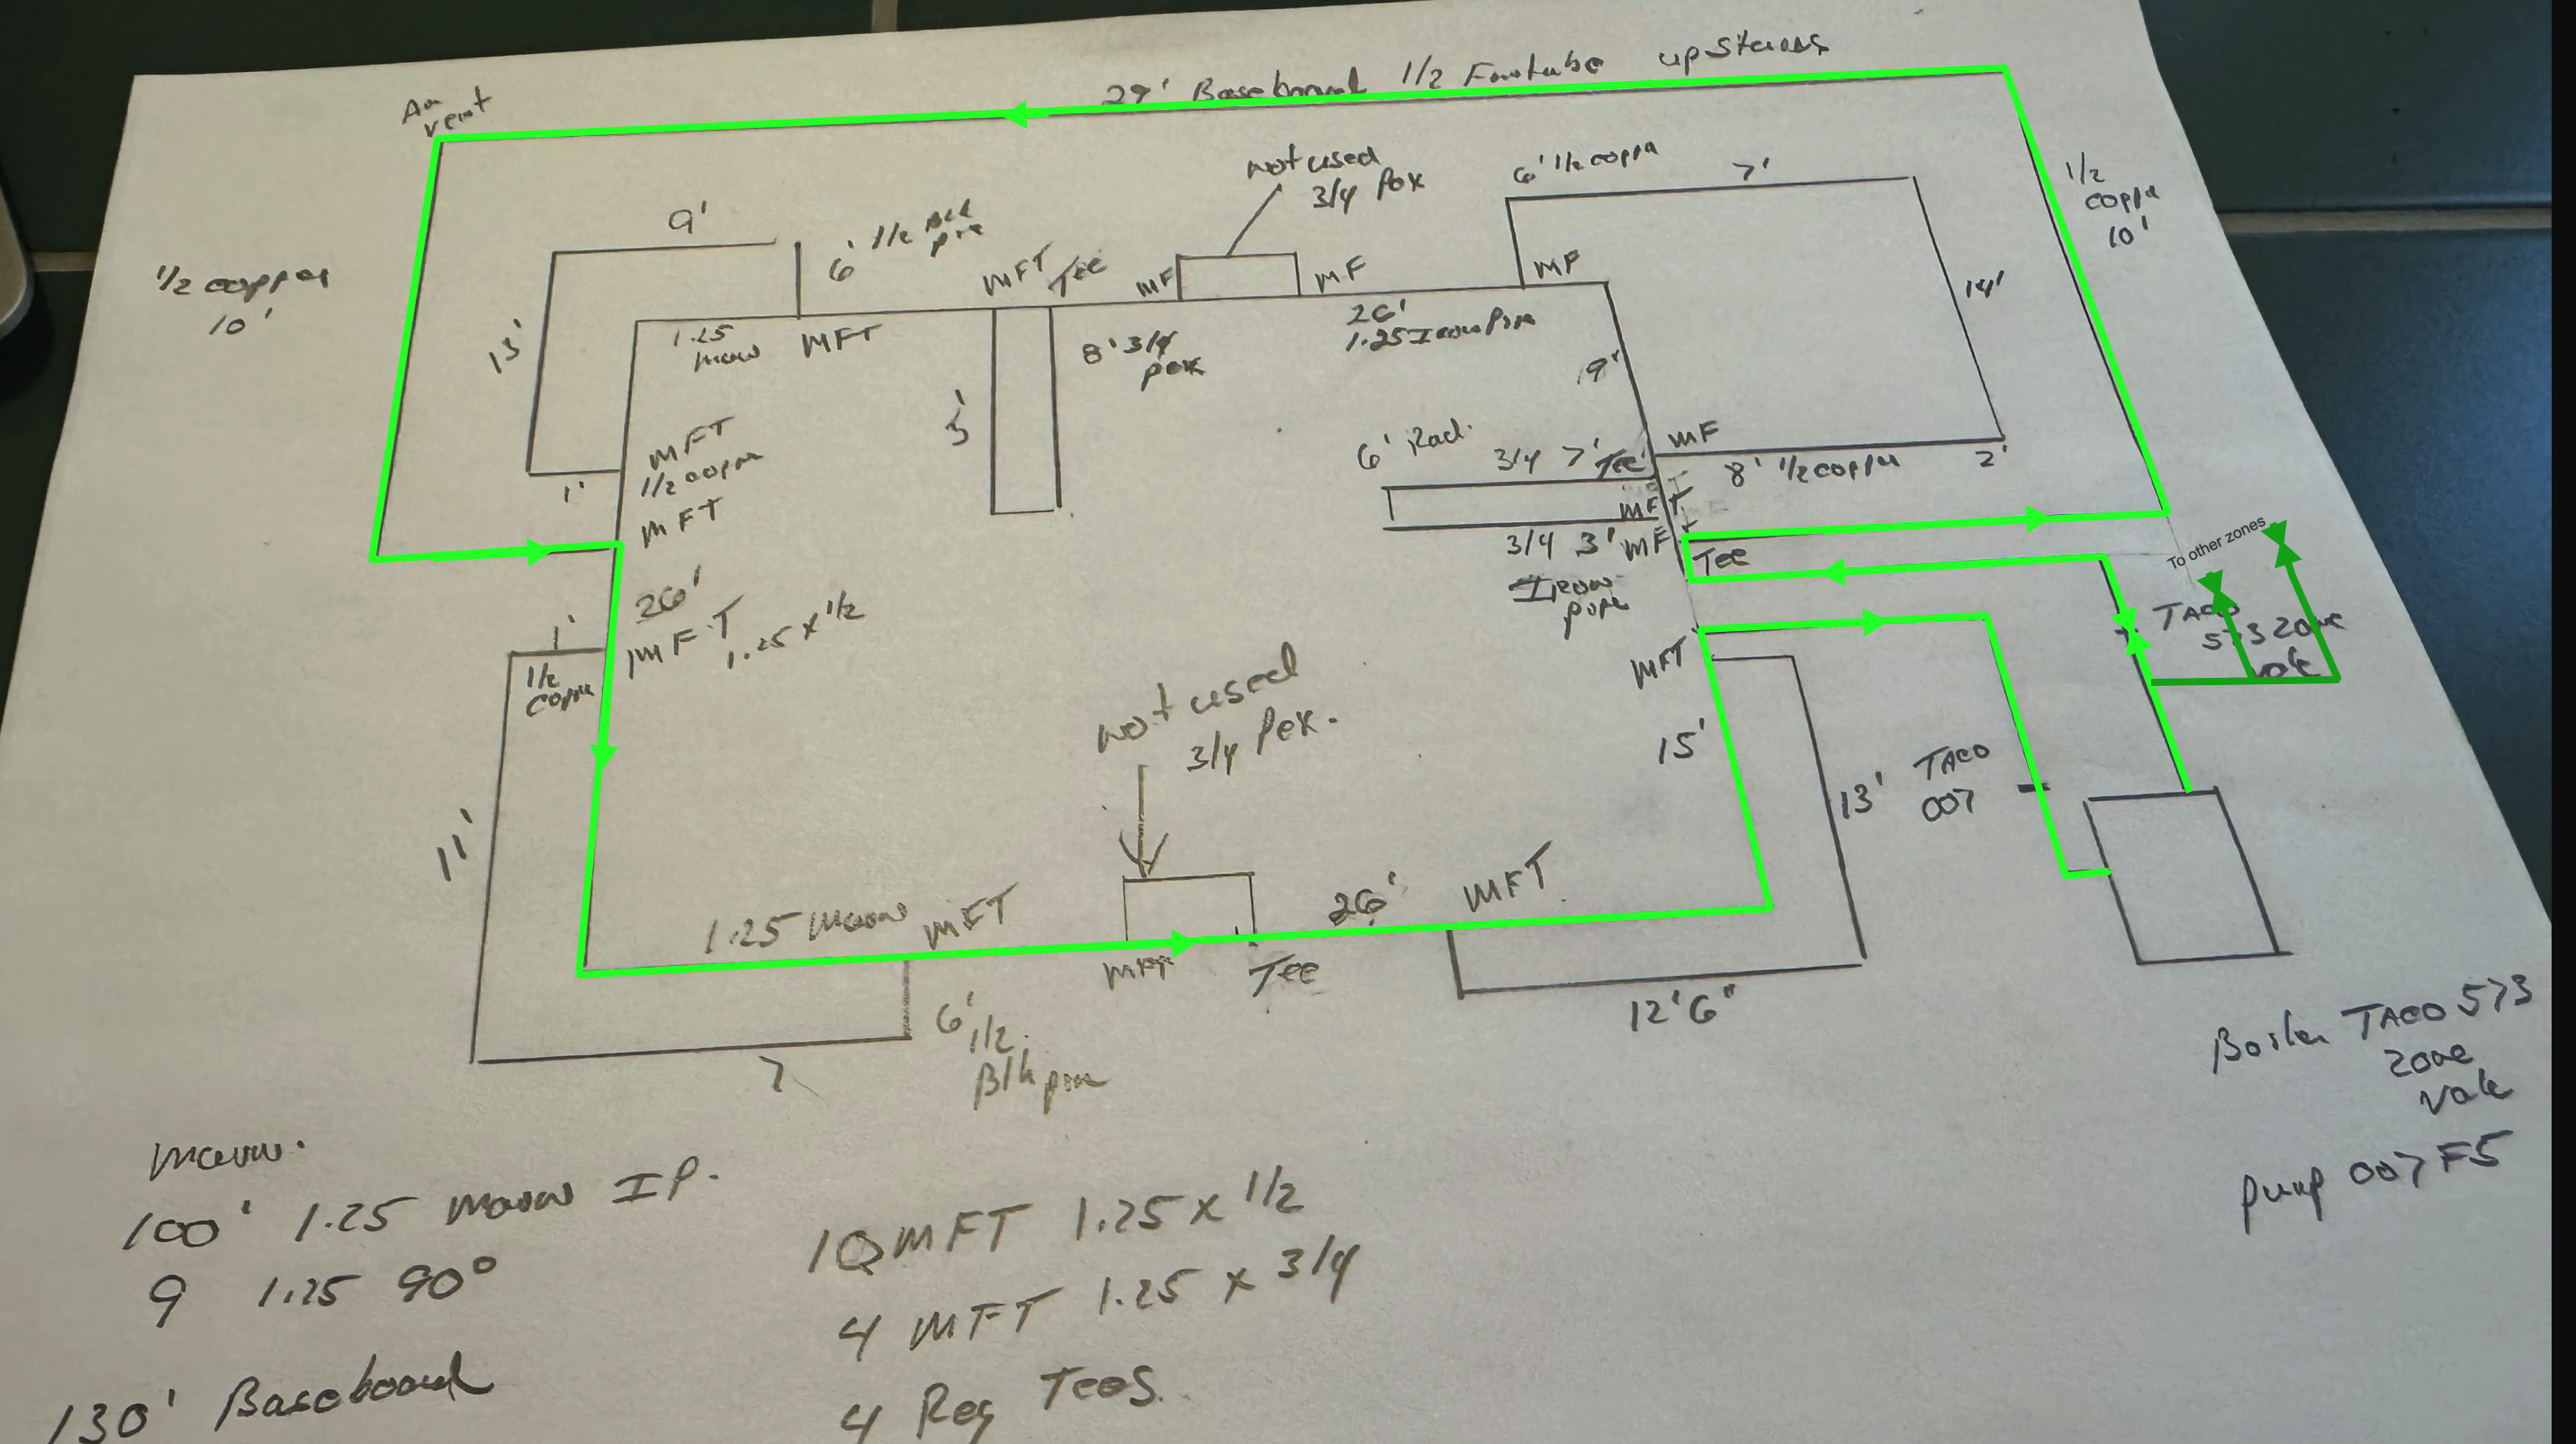 29' Baseboard 1/2 Finntube upstairs
Air
vent
not used
3/4 Pex
6' 1/2 coppr
7'
1/2
copper
10'
9'
6' 1/2 Blk
pie
MFT Tee
MF
MF
MF
1/2 copper
10'
13'
1.25
main
MFT
8' 3/4
pex
26'
1.25 Iron Pipe
9'
14'
5'
6' Rad.
3/4 7' Tee
MF
8' 1/2 copper
2'
MFT
1/2 copper
MFT
1'
MFT
3/4 3' MF
Tee
Iron
pipe
To other zones
TACO
573 Zone
valve
26'
MFT
1.25 x 1/2
1'
1/2
copper
MFT
not used
3/4 Pex.
15'
13'
TACO
007
11'
1.25 main
MFT
26'
MFT
MFT
Tee
12'6"
7
6'
1/2
Blk pipe
Boiler TACO 573
zone
valve
pump 007 F5
Main.
100' 1.25 main IP.
9 1.25 90°
130' Baseboard
10 MFT 1.25 x 1/2
4 MFT 1.25 x 3/4
4 Reg Tees.